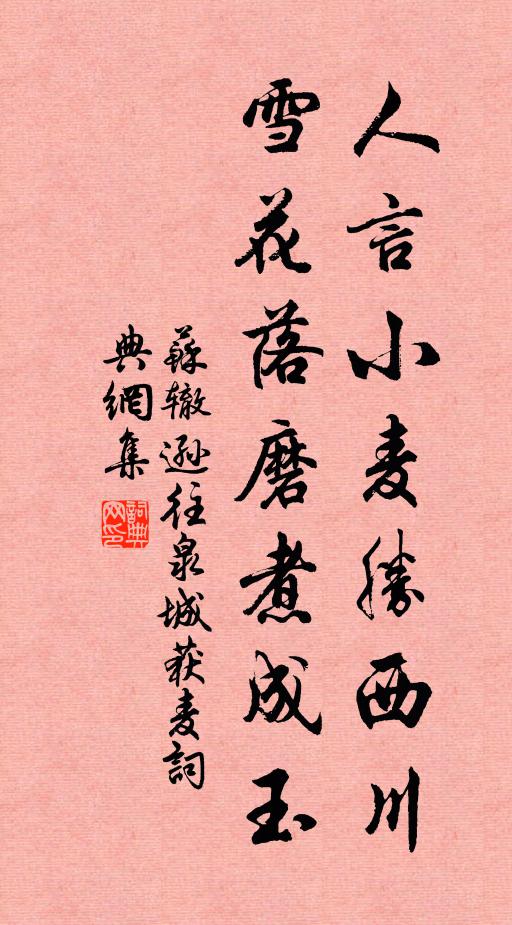 人言小麦勝西川
雪花落磨煮成玉
蘇辙遜往泉城获麦詞
典網集
詞典网印